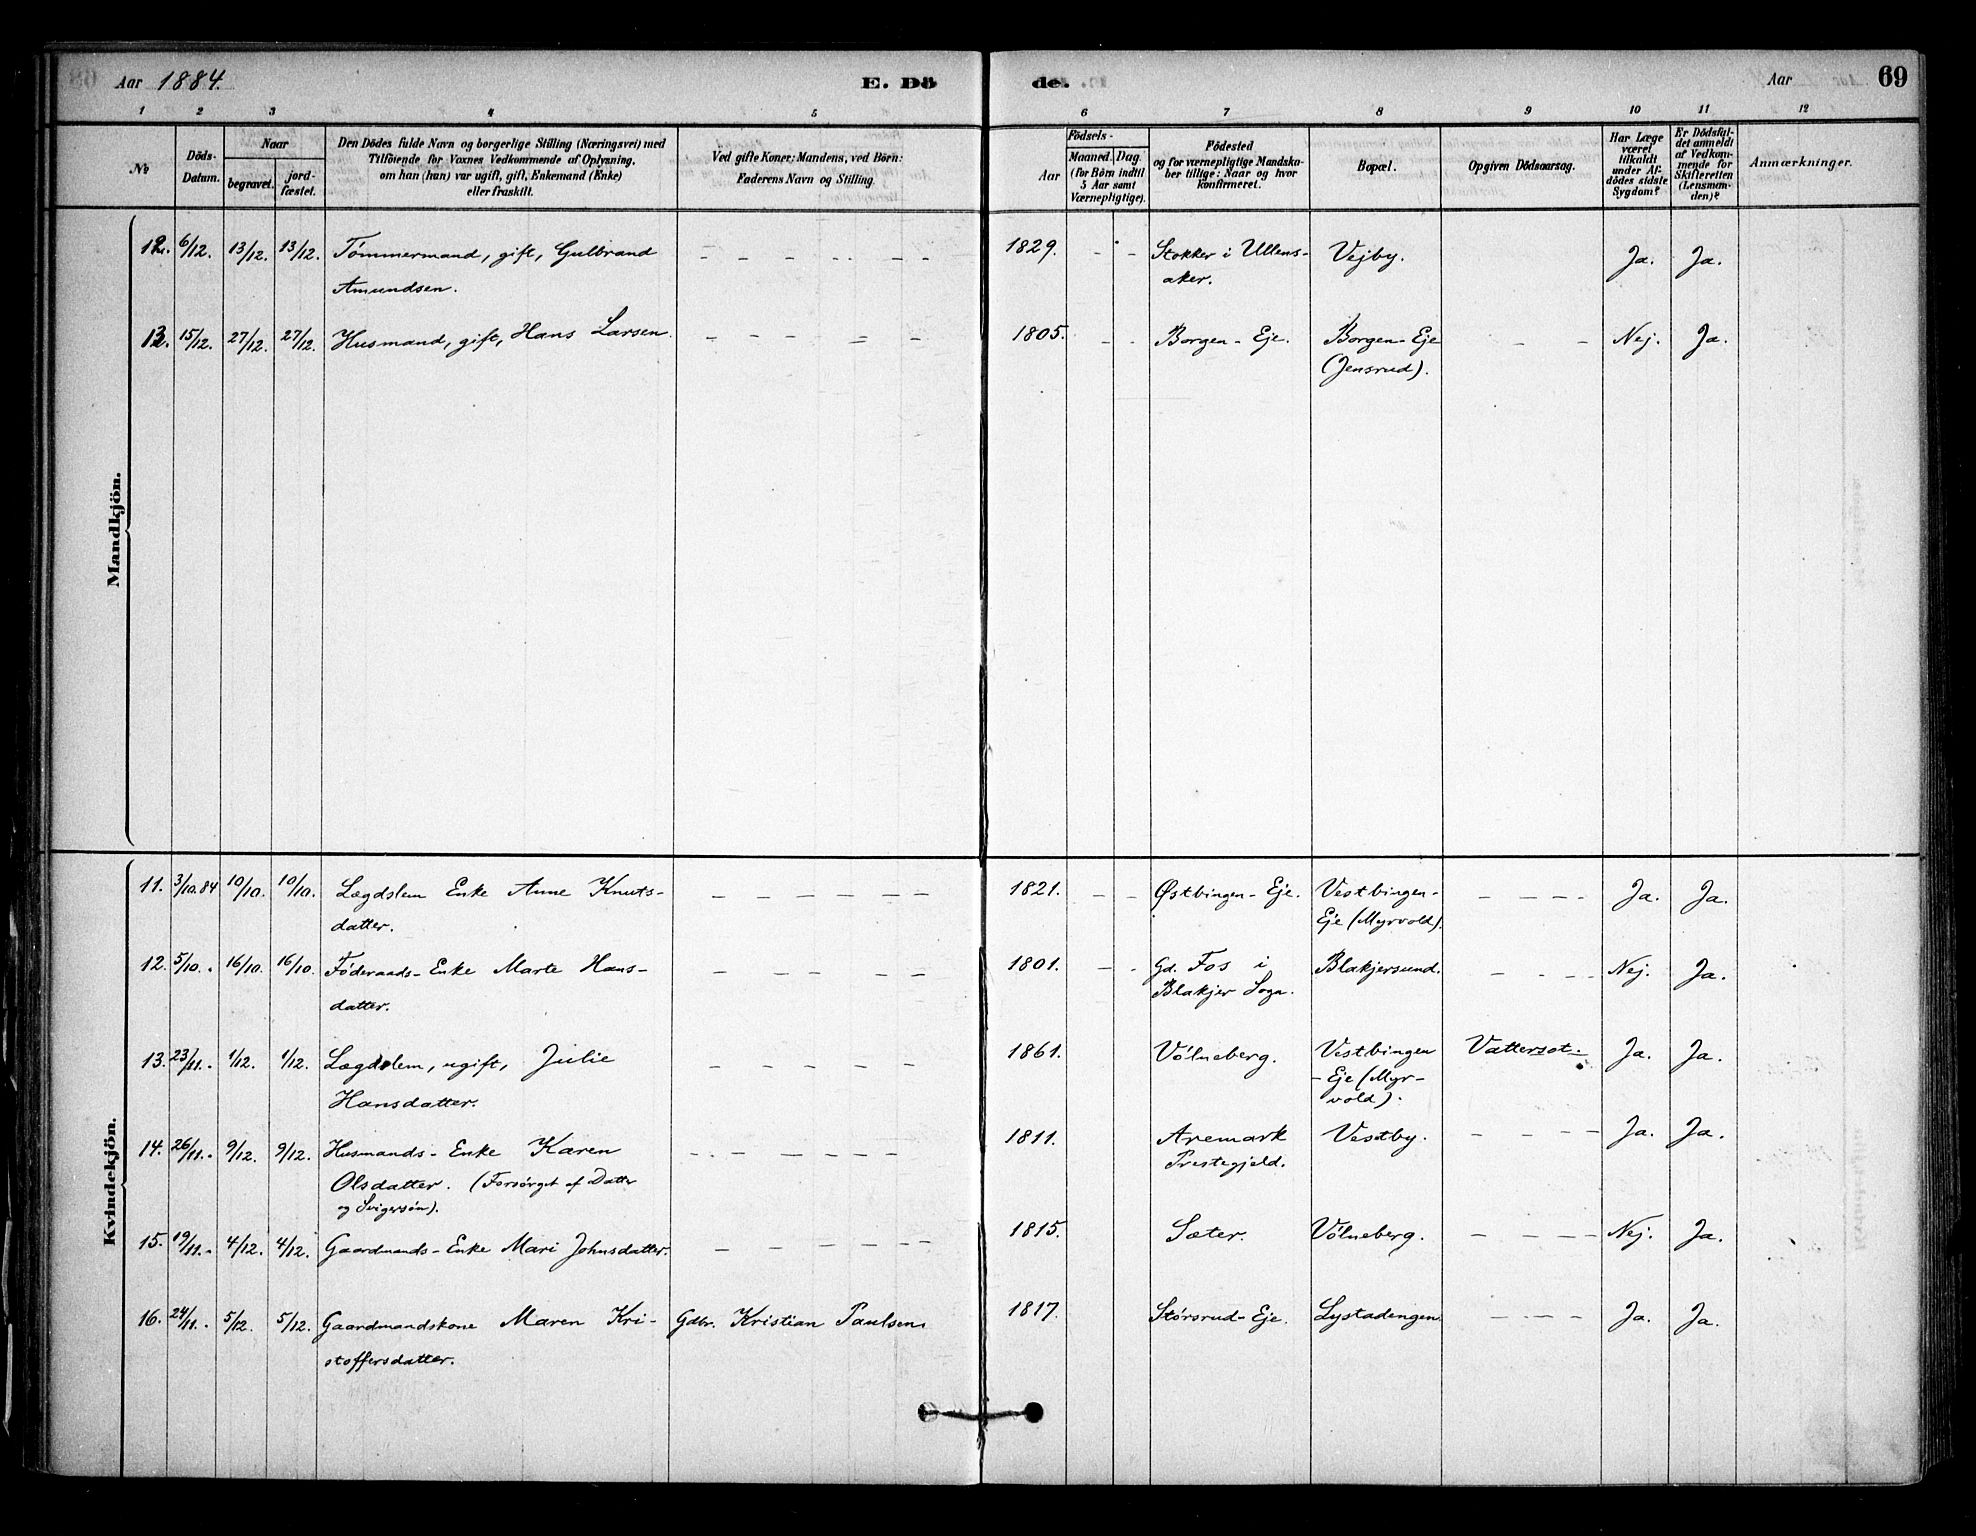 Aar 1884. E. Döde. Aar 69
1 2 3 4 5 6 7 8 9 10 11 12
No
Döds-Datum.
Naar
begravet. jordfæstet.
Den Dödes fulde Navn og borgerlige Stilling (Næringsvei) med
Tilföiende for Voxnes Vedkommende af Oplysning,
om han (hun) var ugift, gift, Enkemand (Enke)
eller fraskilt.
Ved gifte Koner: Mandens, ved Börn:
Faderens Navn og Stilling.
Födsels-
Aar
Maaned. Dag.
(for Börn indtil
5 Aar samt
Værnepligtige).
Födested
og for værnepligtige Mandskaber tillige: Naar og hvor
konfirmeret.
Bopæl.
Opgiven Dödsaarsag.
Har Læge
været
tilkaldt
under Afdödes sidste
Sygdom?
Er Dödsfaldet anmeldt
af Vedkommende for
Skifteretten
(Lensmanden)?
Anmærkninger.
Mandkjön.
12. 6/12. 13/12. 13/12. Tömmermand, gift, Gulbrand — — — — — — 1829. — — Stokker i Ullens- Vejby. Ja. Ja.
Amundsen. aker.
13. 15/12. 27/12. 27/12. Husmand, gift, Hans Larsen. — — — — — — 1805. — — Borgen-Eje. Borgen-Eje — — Nej. Ja.
(Jensrud).
Kvindekjön.
11. 3/10.84 10/10. 10/10. Lægdslem Enke Anne Knuts- — — — — — — 1821. — — Østbingen-Eje. Vestbingen- — — — — Ja. Ja.
datter. Eje (Myrvold).
12. 5/10. 16/10. 16/10. Föderaads-Enke Marte Hans- — — — — — — 1801. — — Gd. Fos i Blakjersund. — — — — Nej. Ja.
datter. Blakjer Sogn.
13. 23/11. 1/12. 1/12. Lægdslem, ugift, Julie — — — — — 1861. Völneberg. Vestbingen Vattersot. Ja. Ja.
Hansdatter. -Eje (Myr-
vold).
14. 26/11. 9/12. 9/12. Husmands-Enke Karen — — — — — — 1811. Aremark Vestby. — — — — Ja. Ja.
Olsdatter. (Forsörget af Datter Prestegjeld.
og Svigersön).
15. 19/11. 4/12. 4/12. Gaardmands-Enke Mari Johnsdatter. — — — — — — 1815. Sæter. Völneberg. — — — — Nej. Ja.
16. 24/11. 5/12. 5/12. Gaardmandskone Maren Kri- Gdbr. Kristian Paulsen 1817. Störsrud-Eje. Lystadengen. — — — Ja. Ja.
stoffersdatter.